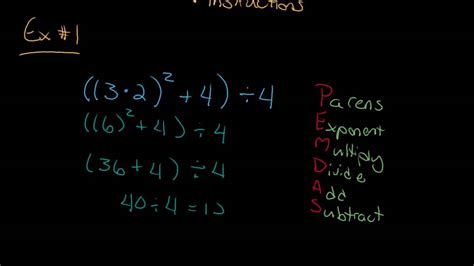 Instructions
Ex #1
((3·2)² + 4) ÷ 4
((6)² + 4) ÷ 4
(36 + 4) ÷ 4
40 ÷ 4 = 10
Parens
Exponent
Multiply
Divide
Add
Subtract